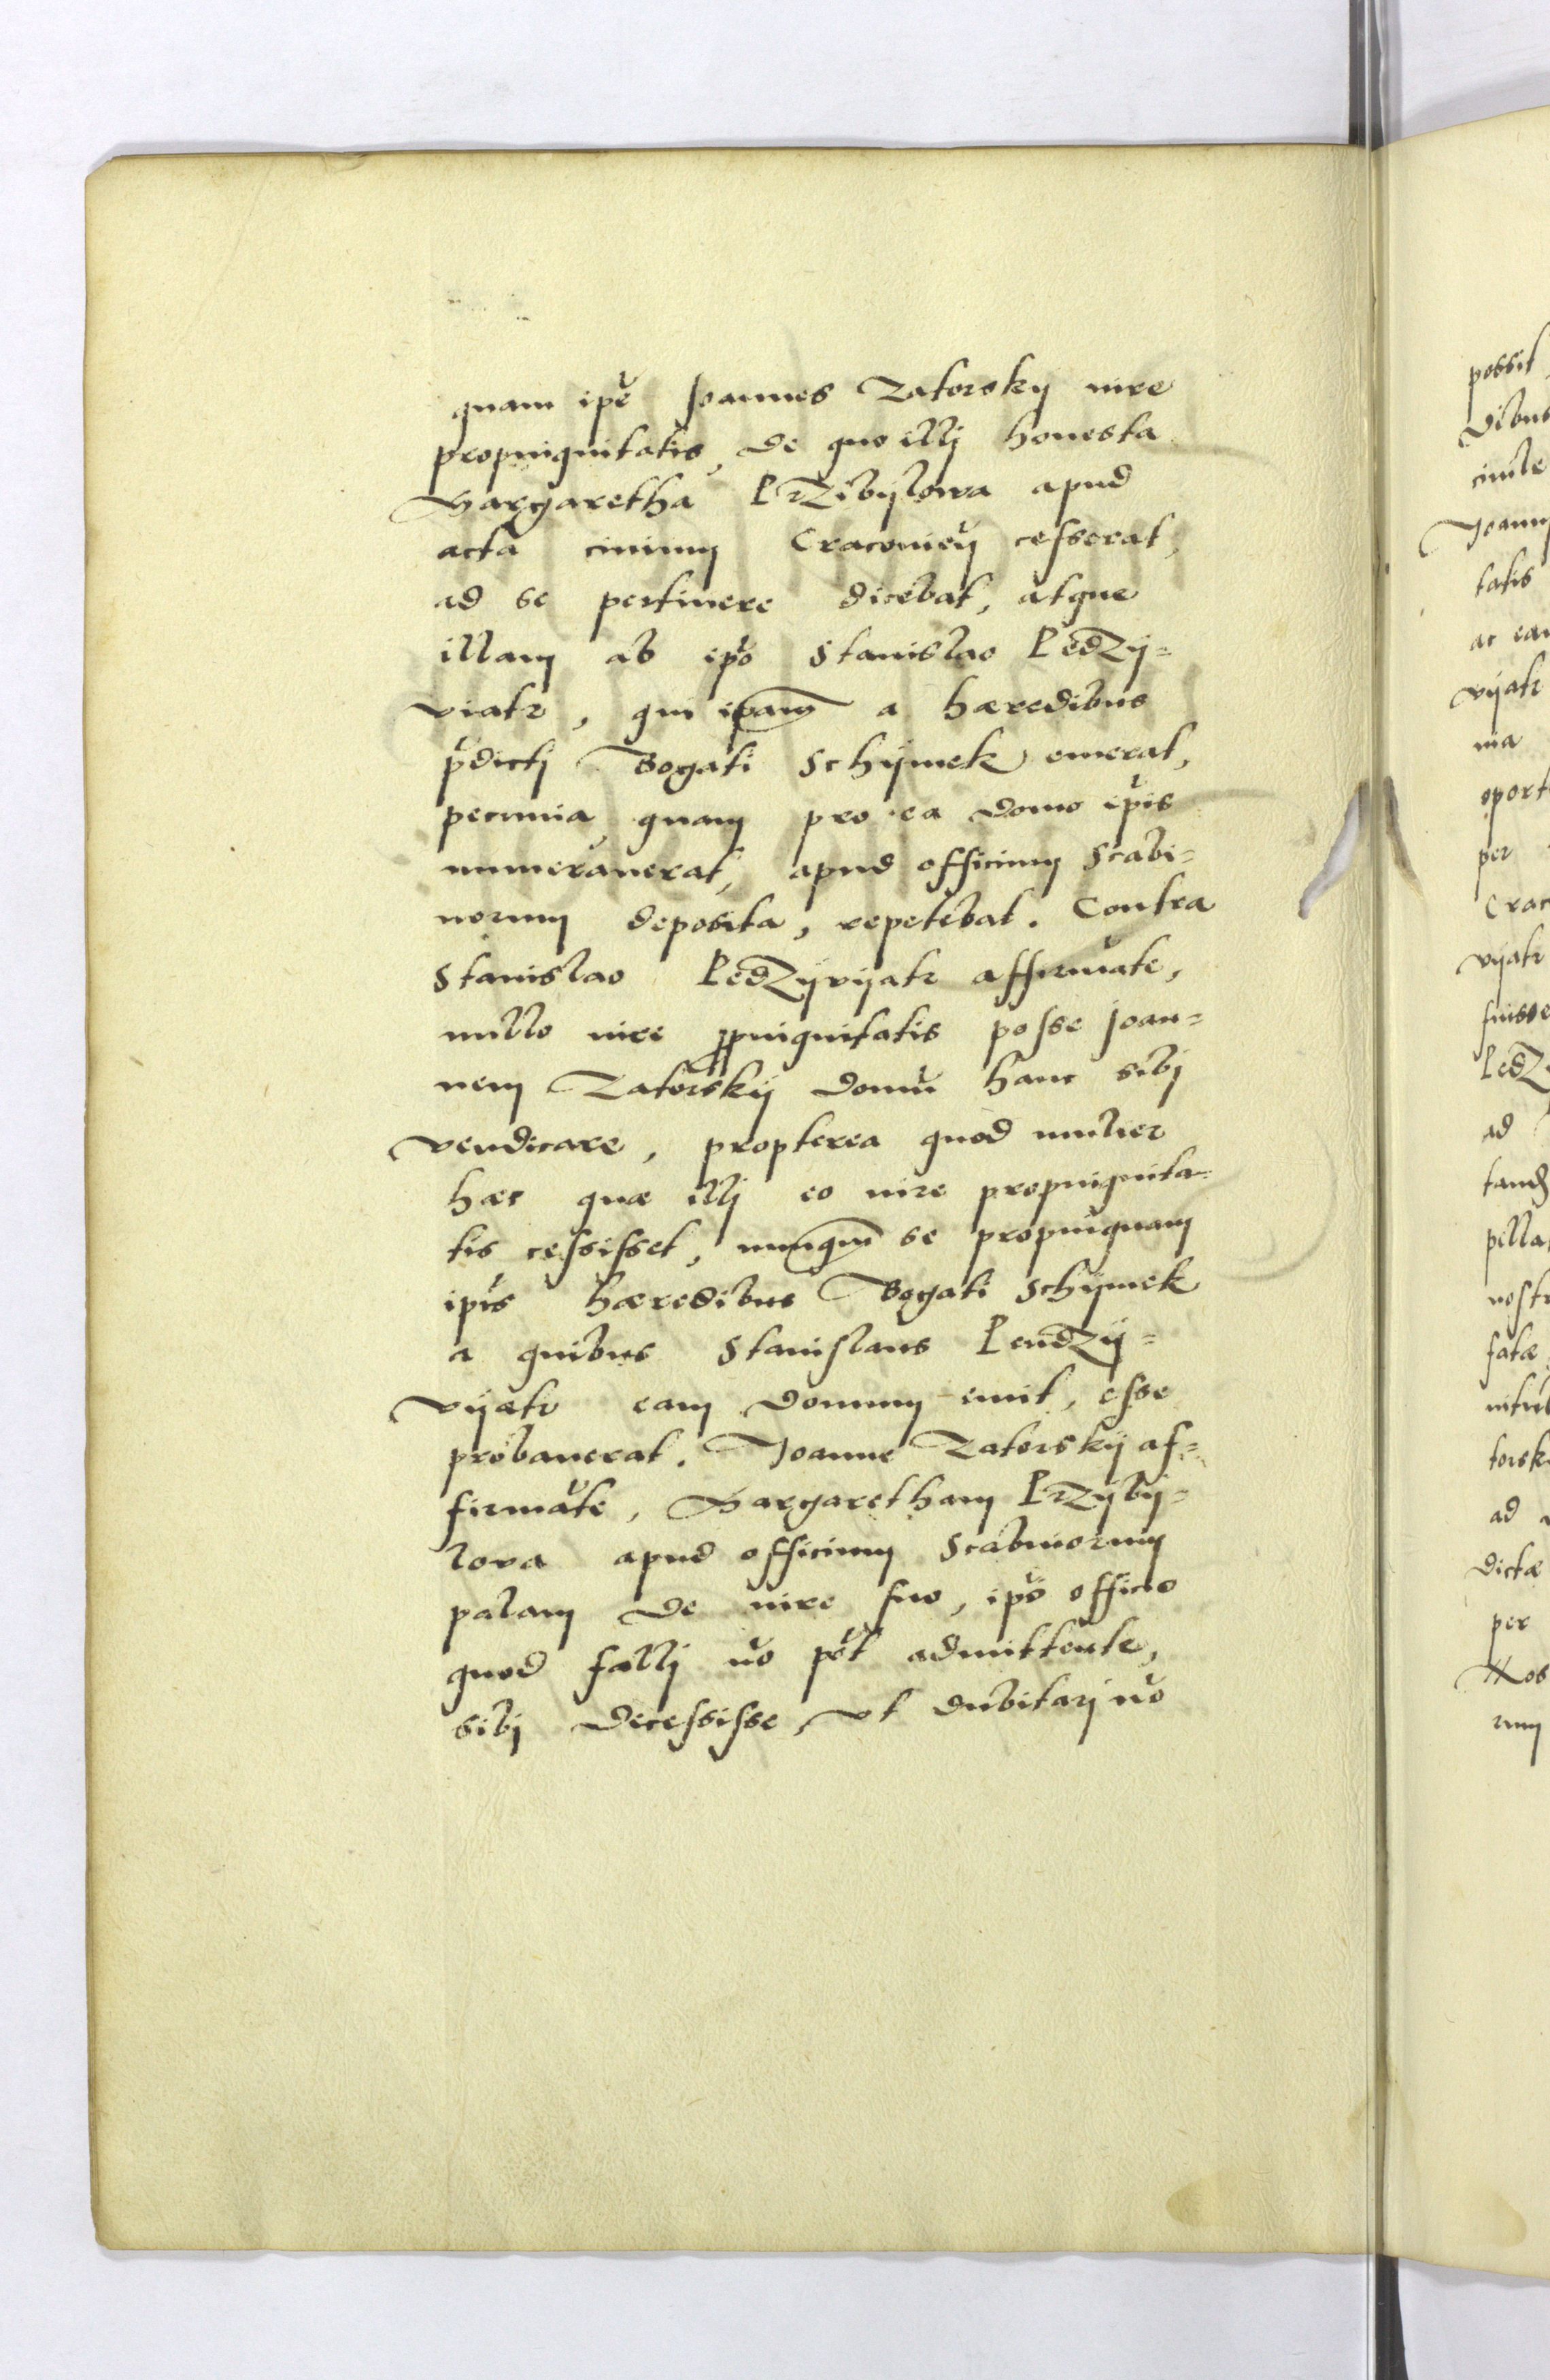 quam ipẽ Joannes Zatorskij iure
propinquitatis, de quo illj honesta
Margaretha Przibijlowa apud
acta ciuium Cracouieñ cesserat,
ad se pertinere dicebat, atque
illam ab ipõ Stanislao Pedzij=
viatr, qui ipam a hæredibus
p̃dictj Bogati Schijmek emerat,
pecunia, quam pro ea domo ipĩs
numerauerat, apud officium Scabi=
norum deposita, repetebat. Contra
Stanislao Pedzijvijatr affirmãte,
nullo iure propinquitatis posse Joan=
nem Zatorskij domũ hanc sibj
vendicare, propterea quod mulier
hæc quæ illj eo iure propinquita=
tis cessisset, nunqm̃ se propinquam
ipĩs hæredibus Bogati Schijmek
a quibus Stanislaus Pendzij=
vijatr eam domum emit, esse
probauerat. Joanne Zatorskij af=
firmãte, Margaretham Przijbij=
lova apud officium Scabinorum
palam de iure suo, ipõ officio
quod fallj nõ põt admittente,
sibj decessisse, vt dubitarj nõ
possit
dibus
ciuile
Joann
tatis
ac ea
vijatr
nia
oport
per
Crac
vijatr
fuisse
Pedz
ad
tand
pella
nostr
fatæ
torsk
ad
dictæ
per
Nos
rum